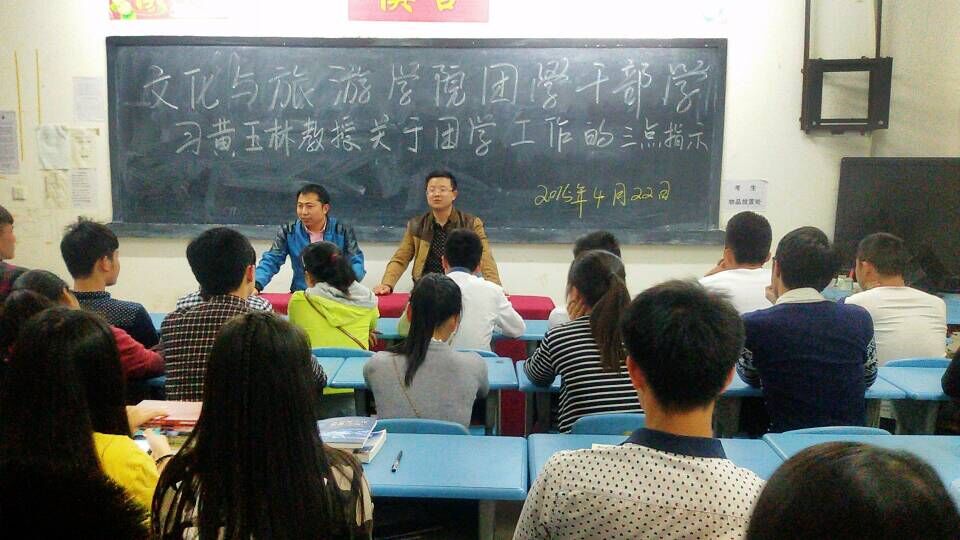 文化与旅游学院团学干部学
习黄玉林教授关于团学工作的三点指示
2015年4月22日
考生
物品放置处